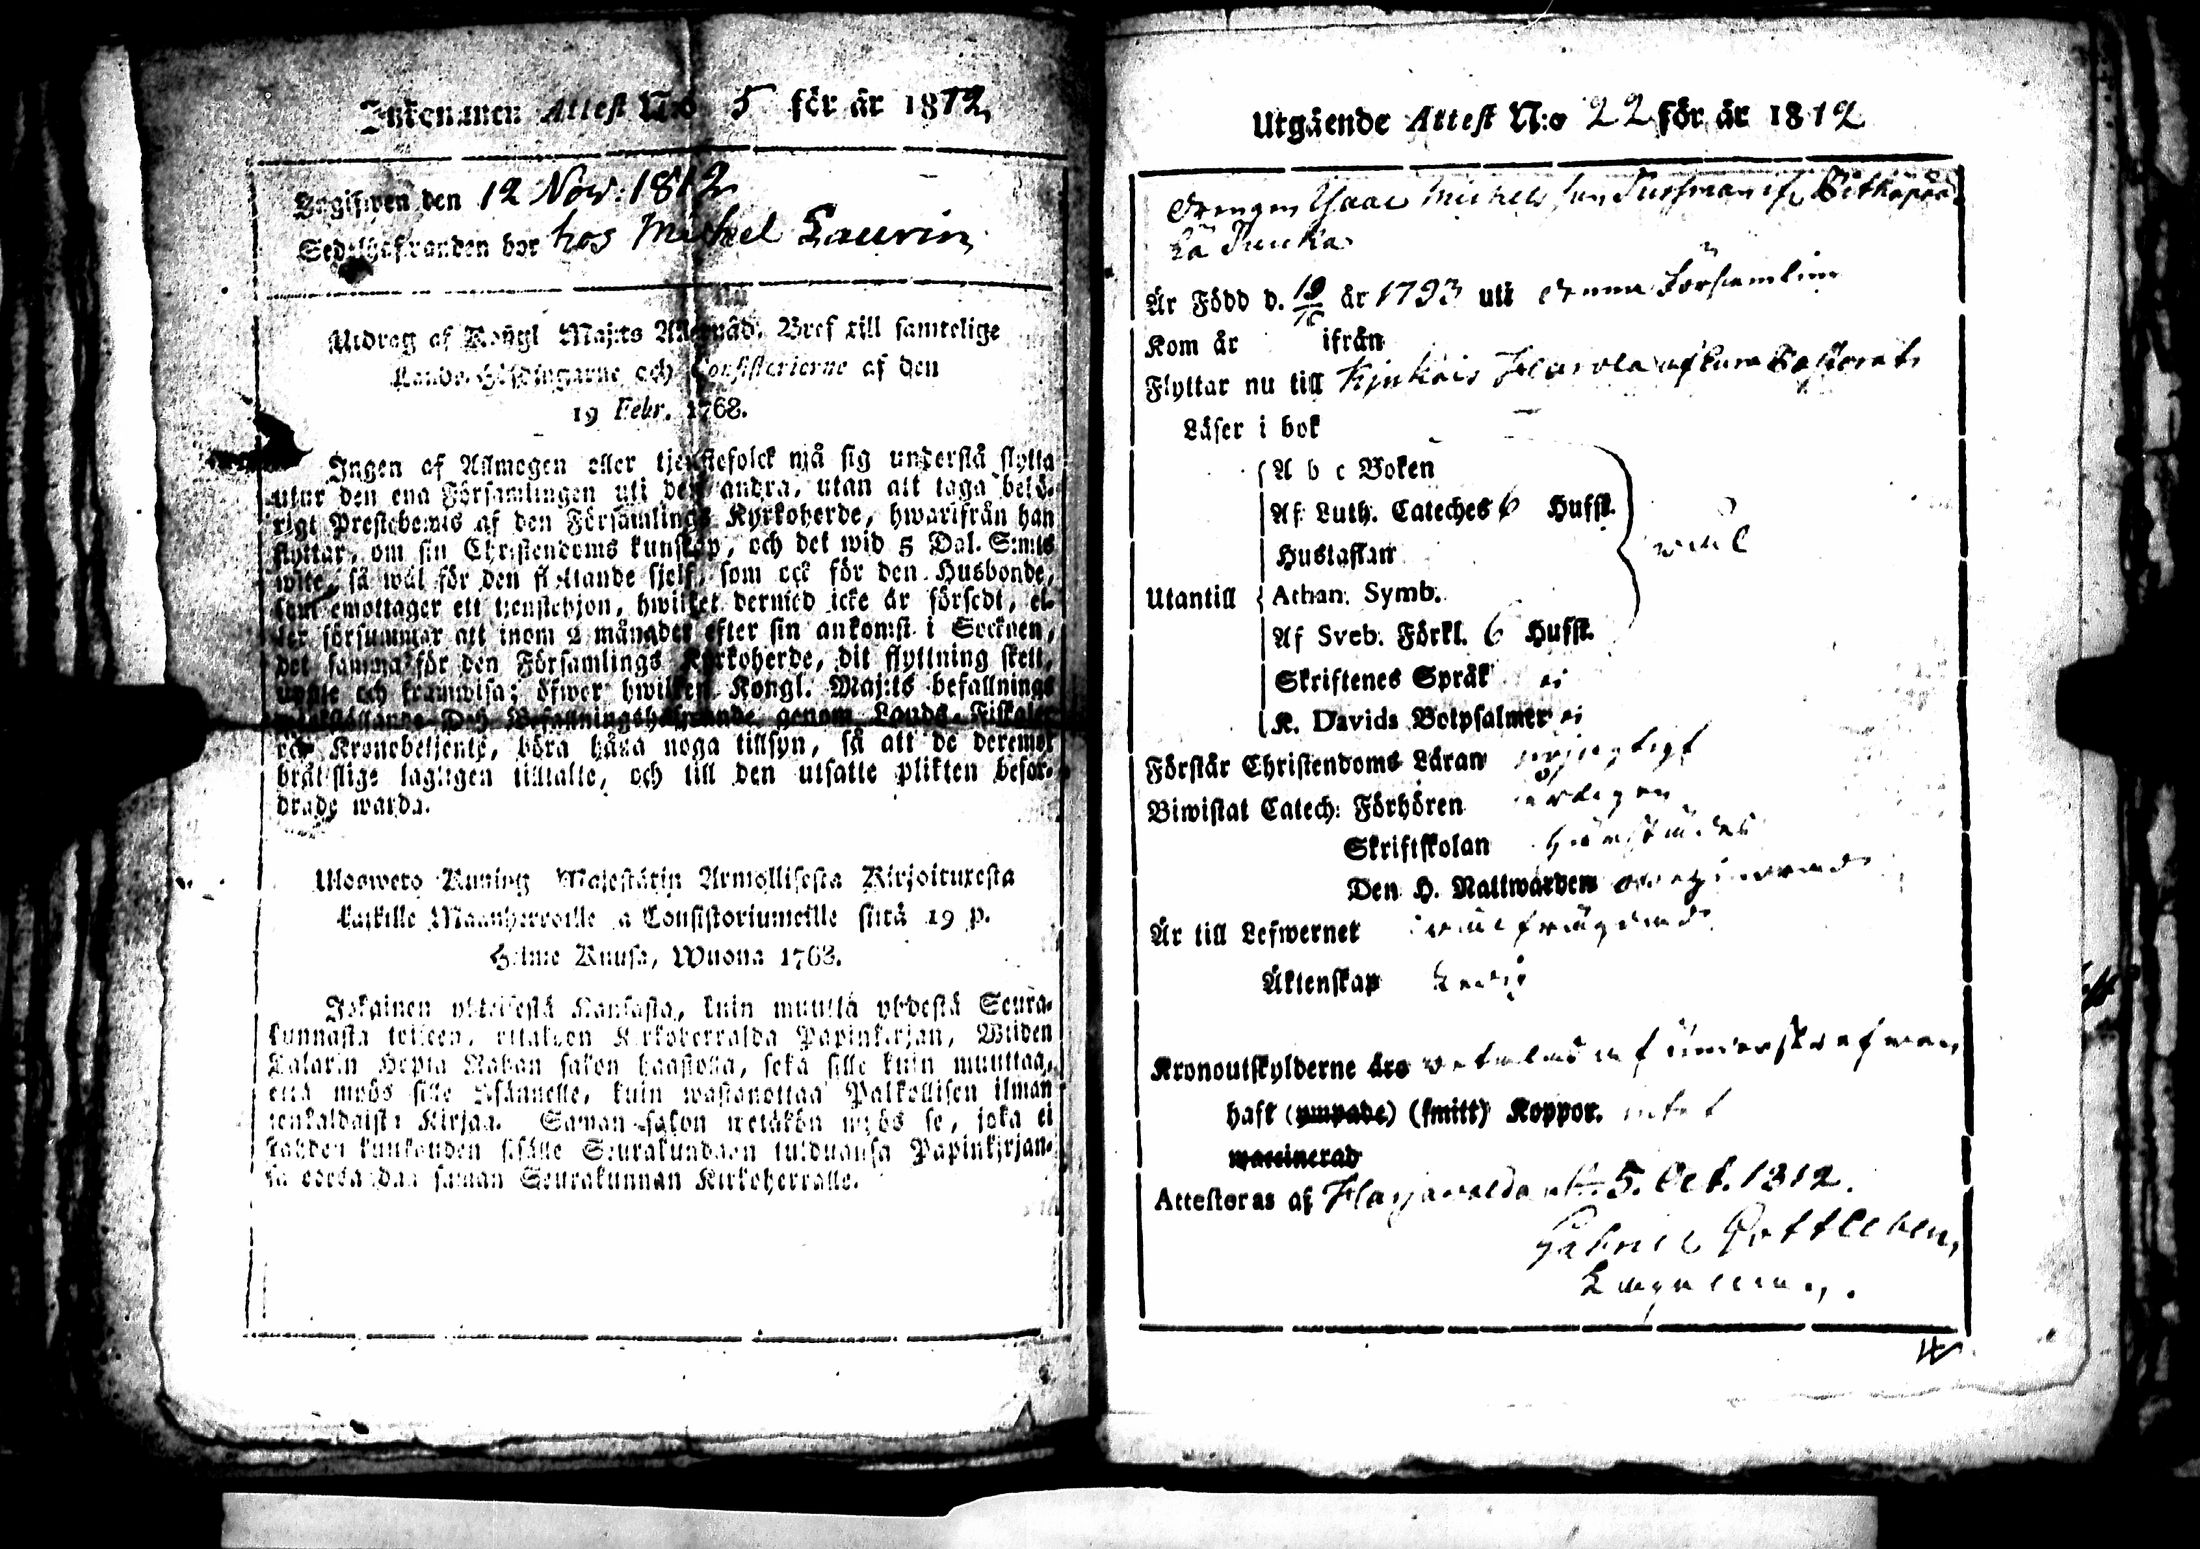 Inkommen Attest N:o 5 för år 1812
Ingifwen den 12 Nov: 1812
Sedelhafwanden bor hos Michel Laurin
Utdrag af Kongl Maj:ts Allernåd. Bref till samtelige
Lands-Höfdingarne och Consistorierne af den
19 Febr. 1768.
Ingen af Allmogen eller tjenstefolck må sig understå flytta
utur den ena Församlingen uti den andra, utan att taga behö-
rigt Prestebewis af den Församlings Kyrkoherde, hwarifrån han
flyttar, om sin Christendoms kunskap, och det wid 5 Dal. S:mts
wite, så wäl för den flyttande sjelf, som ock för den Husbonde,
som emottager ett tjenstehjon, hwilket dermed icke är försedt, el-
ler försummar att inom 2 månader efter sin ankomst i Socknen,
det samma för den Församlings Kyrkoherde, dit flyttning skett,
upte och framwisa; öfwer hwilken Kongl. Maj:ts befallnings
genom Lands-Fiskaler
och Kronobetjente, böra hafwa noga tillsyn, så att de deremot
brättslige lagligen tilltalte, och till den utsatte plikten befor-
drade warda.
Uloswero Kuning Majestätin Armollisesta Kirjoituxesta
kaikille Maanherroille ja Consistoriumeille siitä 19 p.
Helme Kuusa, Wuona 1768.
Jokainen yhteisestä Kansasta, kuin muutta yhdestä Seura-
kunnasta toiseen, ottakoon Kirkoherralda Papinkirjan, Wiiden
Talarin Hopia Rahan sakon haastolla, sekä sille kuin muuttaa,
että myös sille Isännelle, kuin wastanottaa Palkollisen ilman
senkaldaista Kirjaa. Saman sakon wetäkön myös se, joka ei
kahden kuukauden sisälle Seurakundaan tulduansa Papinkirjan-
sa edesanna saman Seurakunnan Kirkoherralle.
Utgående Attest N:o 22 för år 1812
Drengen Isaac Michelsson
Är Född d. 19/10 år 1793 uti denna Församling
Kom år ifrån
Flyttar nu till
Läser i bok
A b c Boken
Af Luth. Cateches 6 Hufst.
Hustaflan
wäl
Utantill
Athan. Symb.
Af Sveb. Förkl. 6 Hufst.
Skriftenes Språk ej
K. Davids Botpsalmer ej
Förstår Christendoms Läran
Biwistat Catech: Förhören
Skriftskolan
Den H. Nattwarden
Är till Lefwernet wälfrägdad
Äktenskap Ledig
Kronoutskylderne äro
haft (ympade) (smitt) Koppor. intet
waccinerad
Attesteras af 5. Oct. 1812.
Gabriel Gottleben,